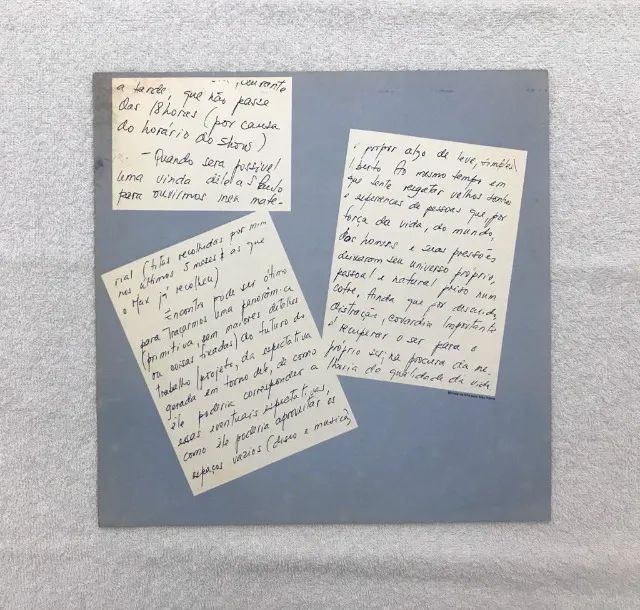 durante
a tarde, que não passe
das 18 horas (por causa
do horário do show)
- Quando sera possivel
uma vinda dêle a S Paulo
para ouvirmos meu mate-
rial (fitas recolhidas por mim
nos últimos 3 meses e as que
o Max já recolheu)
Encontro pode ser ótimo
para traçarmos uma panorâmica
(primitiva, sem maiores detalhes
ou coisas fixadas) do futuro do
trabalho/projeto, da expectativa
gerada em torno dele, de como
êle poderia corresponder a
essas eventuais expectativas,
como êle poderia aproveitar os
espaços vazios (disco e musica)
é propor algo de leve,
liberto. Ao mesmo tempo em
que tente resgatar velhos sonhos
e esperanças de pessoas que, por
força da vida, do mundo,
dos homens e suas pressões
deixaram seu universo próprio,
pessoal e natural preso num
cofre. Ainda que por descuido,
distração, covardia. Importante
é recuperar o ser para o
próprio ser, na procura da me-
lhoria da qualidade da vida